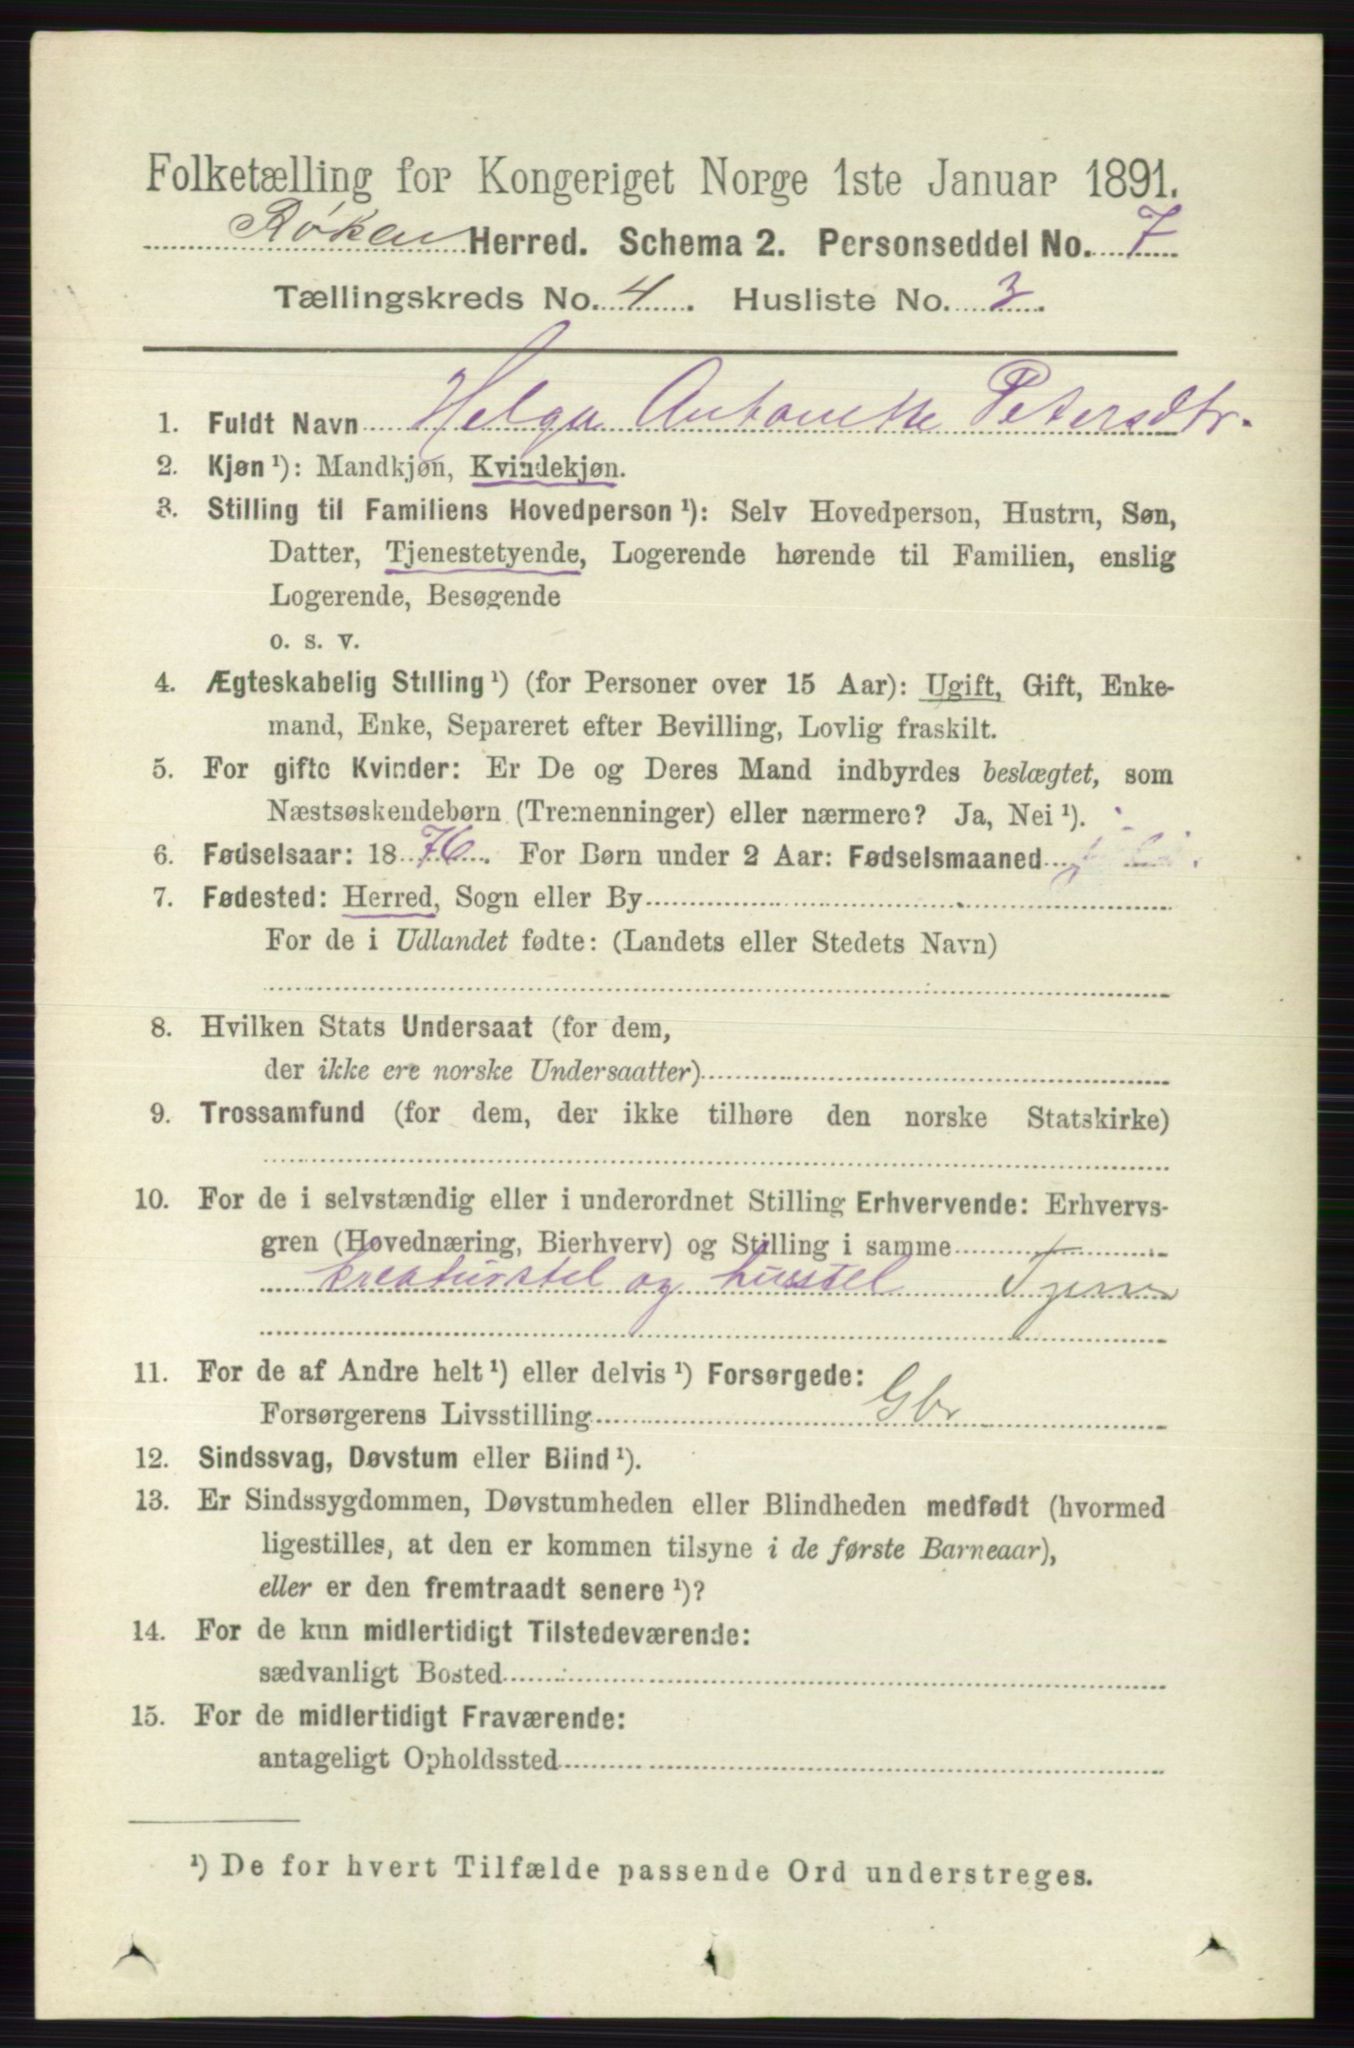 Folketælling for Kongeriget Norge 1ste Januar 1891.
Røken Herred. Schema 2. Personseddel No. 7
Tællingskreds No. 4. Husliste No. 3.
1. Fuldt Navn Helga Antonette Petersdtr.
2. Kjøn ¹): Mandkjøn, Kvindekjøn.
3. Stilling til Familiens Hovedperson ¹): Selv Hovedperson, Hustru, Søn,
Datter, Tjenestetyende, Logerende hørende til Familien, enslig
Logerende, Besøgende
o. s. v.
4. Ægteskabelig Stilling ¹) (for Personer over 15 Aar): Ugift, Gift, Enke-
mand, Enke, Separeret efter Bevilling, Lovlig fraskilt.
5. For gifte Kvinder: Er De og Deres Mand indbyrdes beslægtet, som
Næstsøskendebørn (Tremenninger) eller nærmere? Ja, Nei ¹).
6. Fødselsaar: 1876. For Børn under 2 Aar: Fødselsmaaned
7. Fødested: Herred, Sogn eller By
For de i Udlandet fødte: (Landets eller Stedets Navn)
8. Hvilken Stats Undersaat (for dem,
der ikke ere norske Undersaatter)
9. Trossamfund (for dem, der ikke tilhøre den norske Statskirke)
10. For de i selvstændig eller i underordnet Stilling Erhvervende: Erhvervs-
gren (Hovednæring, Bierhverv) og Stilling i samme
kreaturstel og husstel
11. For de af Andre helt ¹) eller delvis ¹) Forsørgede:
Forsørgerens Livsstilling Gbr
12. Sindssvag, Døvstum eller Blind ¹).
13. Er Sindssygdommen, Døvstumheden eller Blindheden medfødt (hvormed
ligestilles, at den er kommen tilsyne i de første Barneaar),
eller er den fremtraadt senere ¹)?
14. For de kun midlertidigt Tilstedeværende:
sædvanligt Bosted
15. For de midlertidigt Fraværende:
antageligt Opholdssted
¹) De for hvert Tilfælde passende Ord understreges.